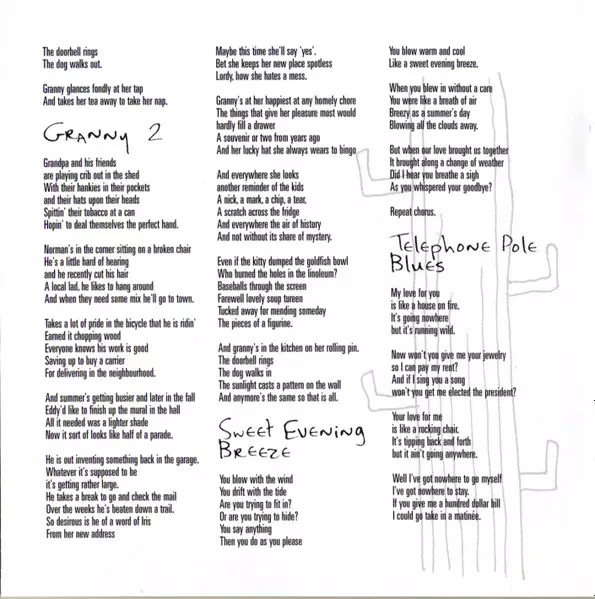 The doorbell rings
The dog walks out.
Granny glances fondly at her tap
And takes her tea away to take her nap.
GRANNY 2
Grandpa and his friends
are playing crib out in the shed
With their hankies in their pockets
and their hats upon their heads
Spittin' their tobacco at a can
Hopin' to deal themselves the perfect hand.
Norman's in the corner sitting on a broken chair
He's a little hard of hearing
and he recently cut his hair
A local lad, he likes to hang around
And when they need some mix he'll go to town.
Takes a lot of pride in the bicycle that he is ridin'
Earned it chopping wood
Everyone knows his work is good
Saving up to buy a carrier
For delivering in the neighbourhood.
And summer's getting busier and later in the fall
Eddy'd like to finish up the mural in the hall
All it needed was a lighter shade
Now it sort of looks like half of a parade.
He is out inventing something back in the garage.
Whatever it's supposed to be
it's getting rather large.
He takes a break to go and check the mail
Over the weeks he's beaten down a trail.
So desirous is he of a word of Iris
From her new address
Maybe this time she'll say 'yes'.
Bet she keeps her new place spotless
Lordy, how she hates a mess.
Granny's at her happiest at any homely chore
The things that give her pleasure most would
hardly fill a drawer
A souvenir or two from years ago
And her lucky hat she always wears to bingo
And everywhere she looks
another reminder of the kids
A nick, a mark, a chip, a tear,
A scratch across the fridge
And everywhere the air of history
And not without its share of mystery.
Even if the kitty dumped the goldfish bowl
Who burned the holes in the linoleum?
Baseballs through the screen
Farewell lovely soup tureen
Tucked away for mending someday
The pieces of a figurine.
And granny's in the kitchen on her rolling pin.
The doorbell rings
The dog walks in
The sunlight casts a pattern on the wall
And anymore's the same so that is all.
SWEET EVENING
BREEZE
You blow with the wind
You drift with the tide
Are you trying to fit in?
Or are you trying to hide?
You say anything
Then you do as you please
You blow warm and cool
Like a sweet evening breeze.
When you blew in without a care
You were like a breath of air
Breezy as a summer's day
Blowing all the clouds away.
But when our love brought us together
It brought along a change of weather
Did I hear you breathe a sigh
As you whispered your goodbye?
Repeat chorus.
Telephone Pole
Blues
My love for you
is like a house on fire.
It's going nowhere
but it's running wild.
Now won't you give me your jewelry
so I can pay my rent?
And if I sing you a song
won't you get me elected the president?
Your love for me
is like a rocking chair.
It's tipping back and forth
but it ain't going anywhere.
Well I've got nowhere to go myself
I've got nowhere to stay.
If you give me a hundred dollar bill
I could go take in a matinée.